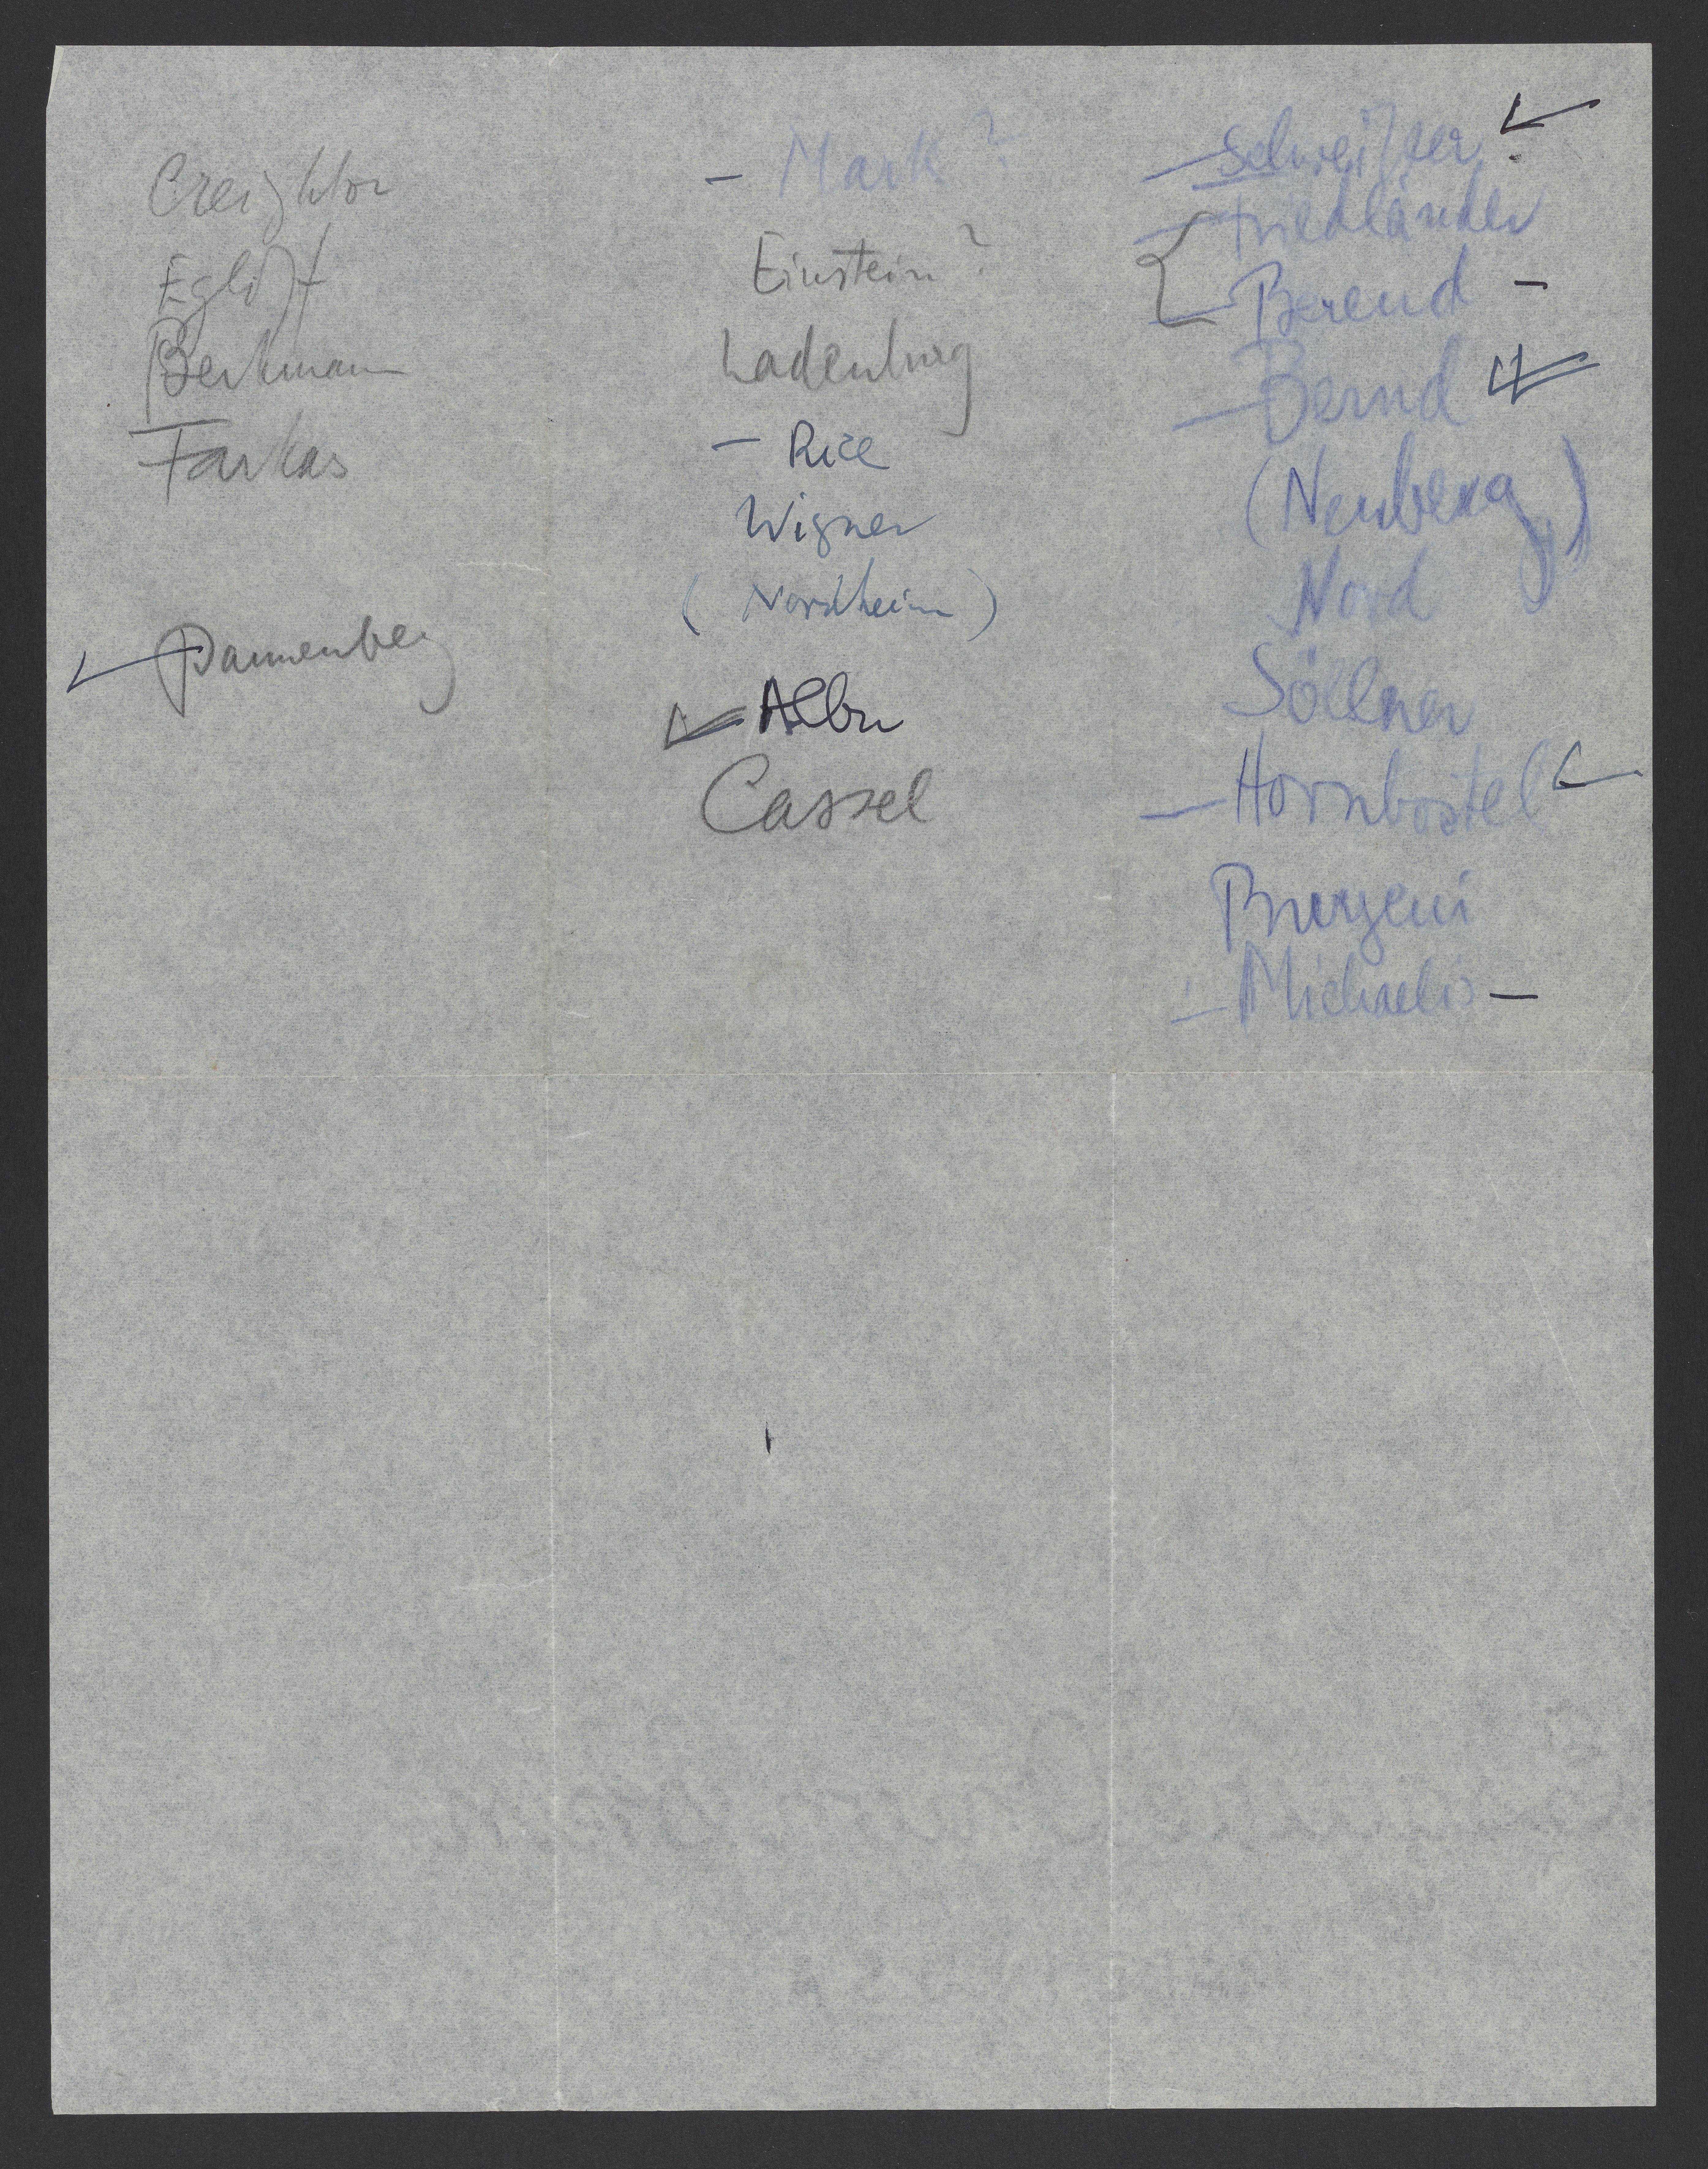 Creighton
Egli
Berkmann
Farkas
Dannenberg
– Mark ?
Einstein ?
Ladenburg
– Rice
Wigner
( Nordheim )
Albu
Cassel
– Schweitzer
– Friedländer
– Berend –
– Bernd
(Neuberg)
Nord
Söllner
– Hornbostel
– Michaelis –